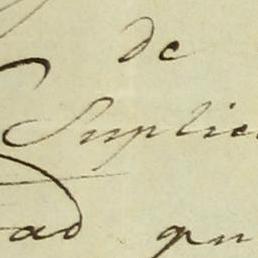 de
Suplic
ad qu